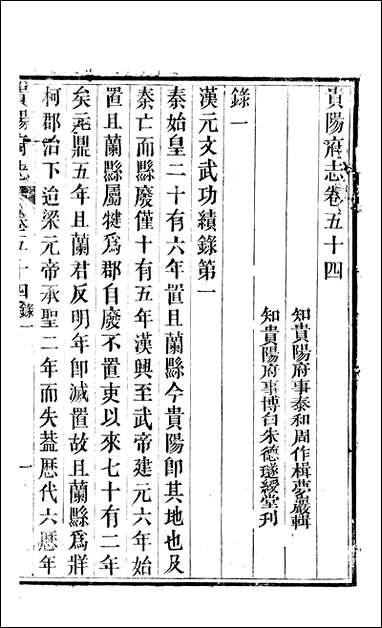 貴陽府志卷五十四
知貴陽府事泰和周作楫夢巖輯
知貴陽府事博白朱德璲綬堂刊
錄一
漢元文武功績錄第一
秦始皇二十有六年置且蘭縣今貴陽卽其地也及
秦亡而縣廢僅十有五年漢興至武帝建元六年始
置且蘭縣屬犍爲郡自廢不置吏以來七十有二年
矣元鼎五年且蘭君反明年卽滅置故且蘭縣爲牂
柯郡治下迨梁元帝承聖二年而失蓋歷代六歷年
貴陽府志 卷五十四 錄一 一